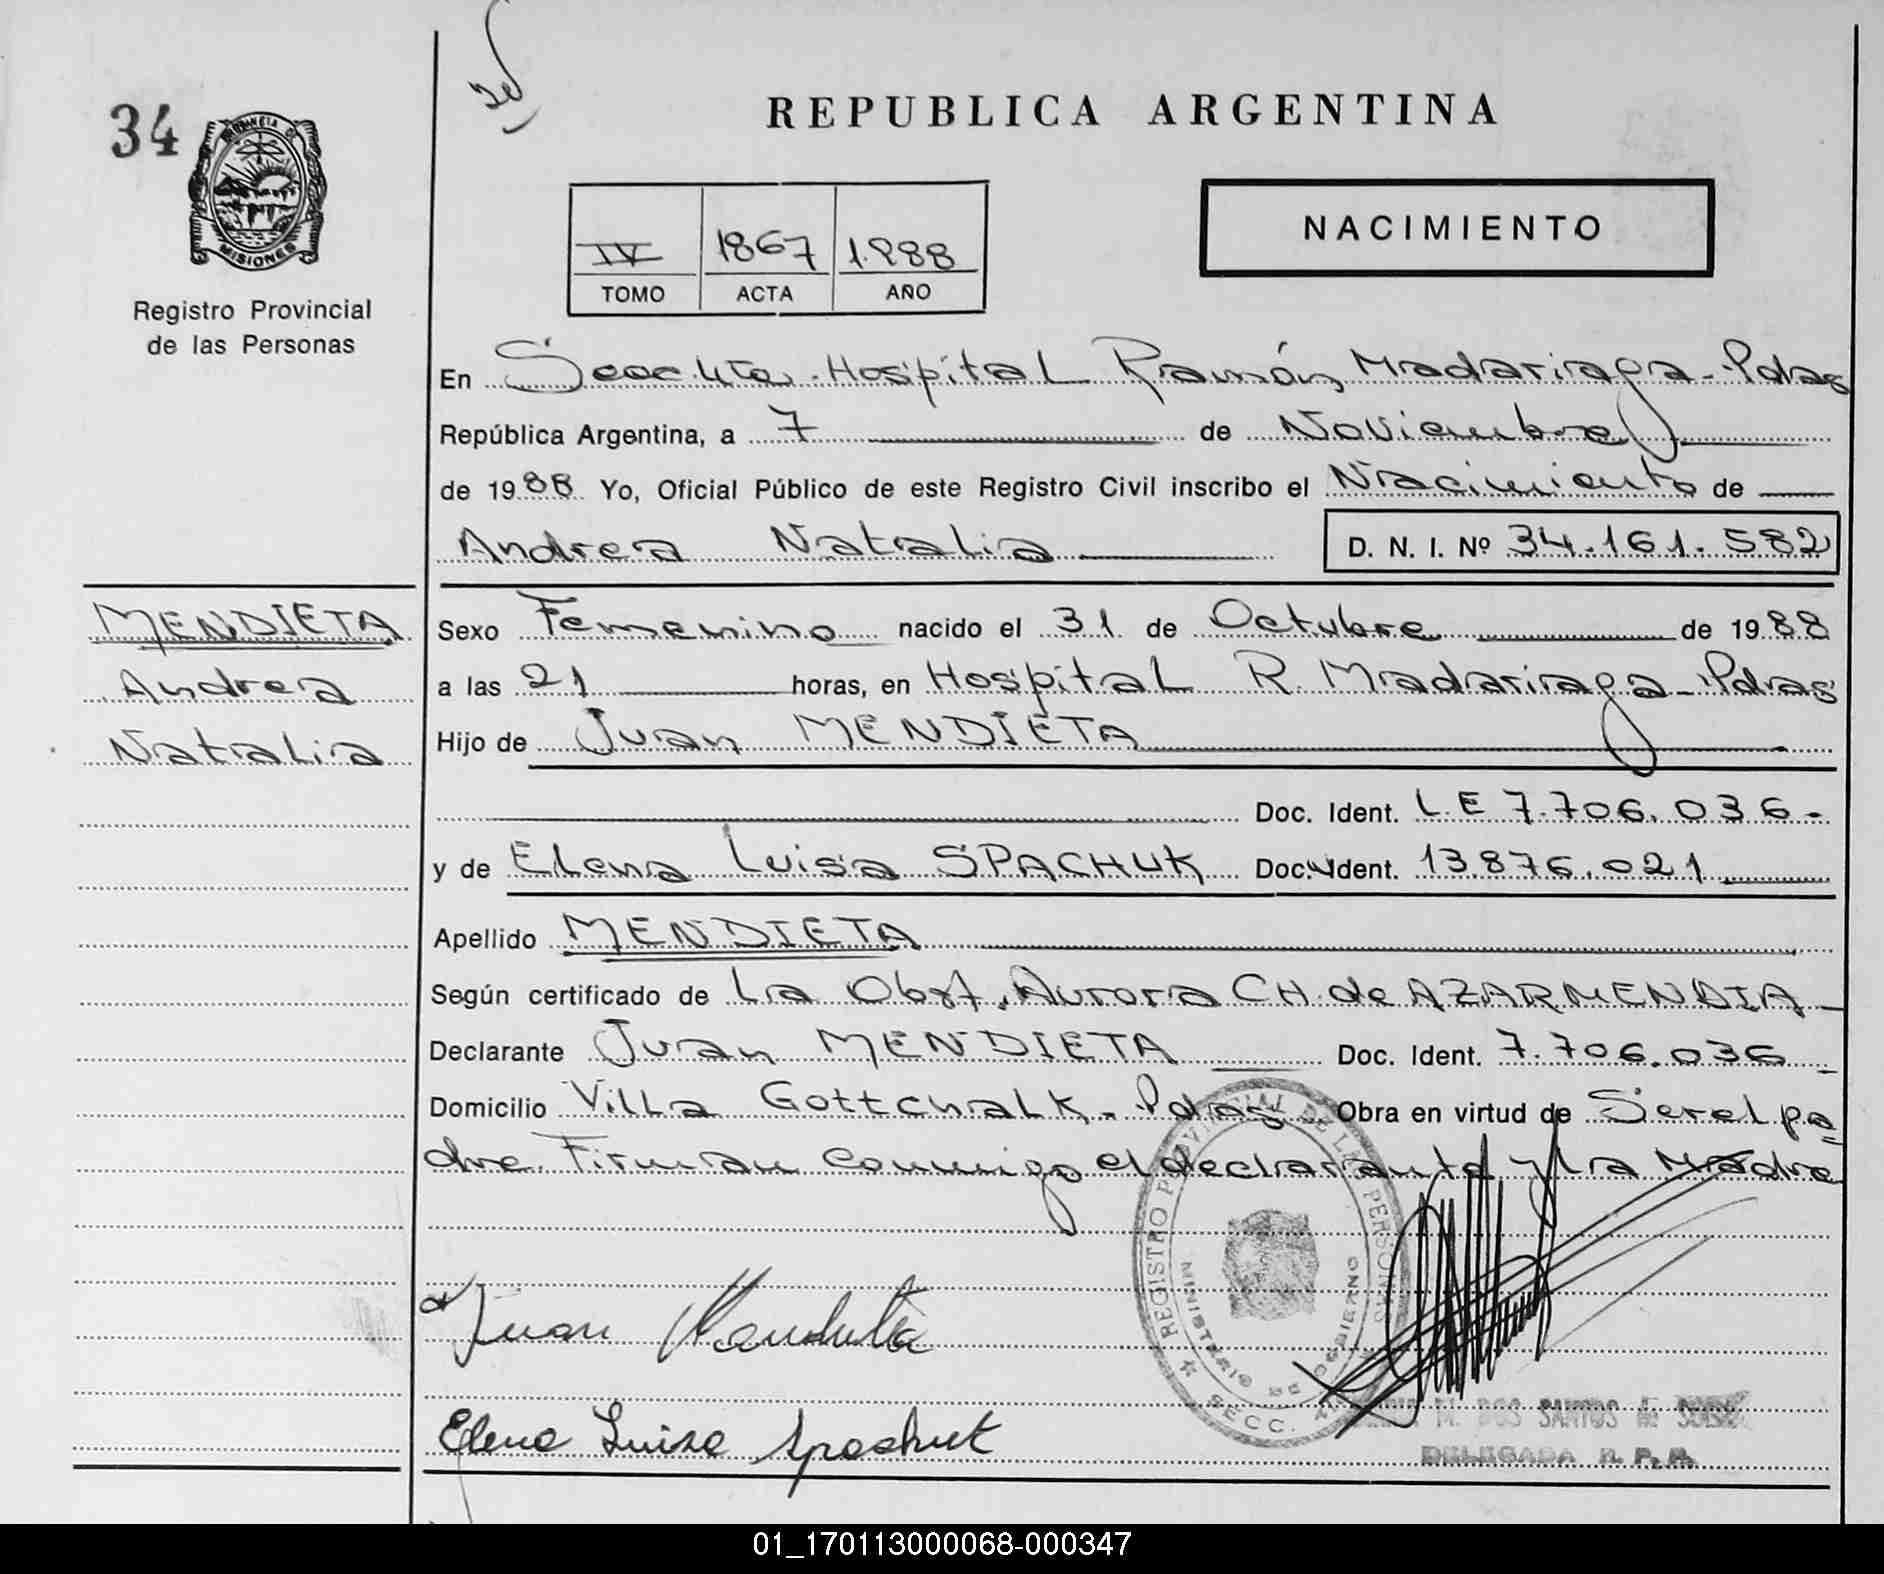 34
REPUBLICA ARGENTINA
PROVINCIA DE
MISIONES
Registro Provincial
de las Personas
IV 1867 1.988
TOMO ACTA AÑO
NACIMIENTO
En Secc. Hospital Ramón Madariaga - Pdas
República Argentina, a 7 de Noviembre
de 1988 Yo, Oficial Público de este Registro Civil inscribo el Nacimiento de
Andrea Natalia D. N. I. Nº 34.161.582
MENDIETA
Andrea
Natalia
Sexo Femenino nacido el 31 de Octubre de 1988
a las 21 horas, en Hospital R. Madariaga - Pdas
Hijo de Juan MENDIETA
Doc. Ident. L.E 7.706.036.-
y de Elena Luisa SPACHUK Doc. Ident. 13.876.021
Apellido MENDIETA
Según certificado de La Obst. Aurora CH. de AZARMENDIA
Declarante Juan MENDIETA Doc. Ident. 7.706.036
Domicilio Villa Gottchalk - Pdas Obra en virtud de Ser el pa=
dre. Firman conmigo el declarante y la Madre
Juan Mendieta
Elena Luisa Spachuk
REGISTRO PROVINCIAL DE LAS PERSONAS
MINISTERIO DE GOBIERNO
SECC.
M. DOS SANTOS
DELEGADA R. P. P.
01_170113000068-000347